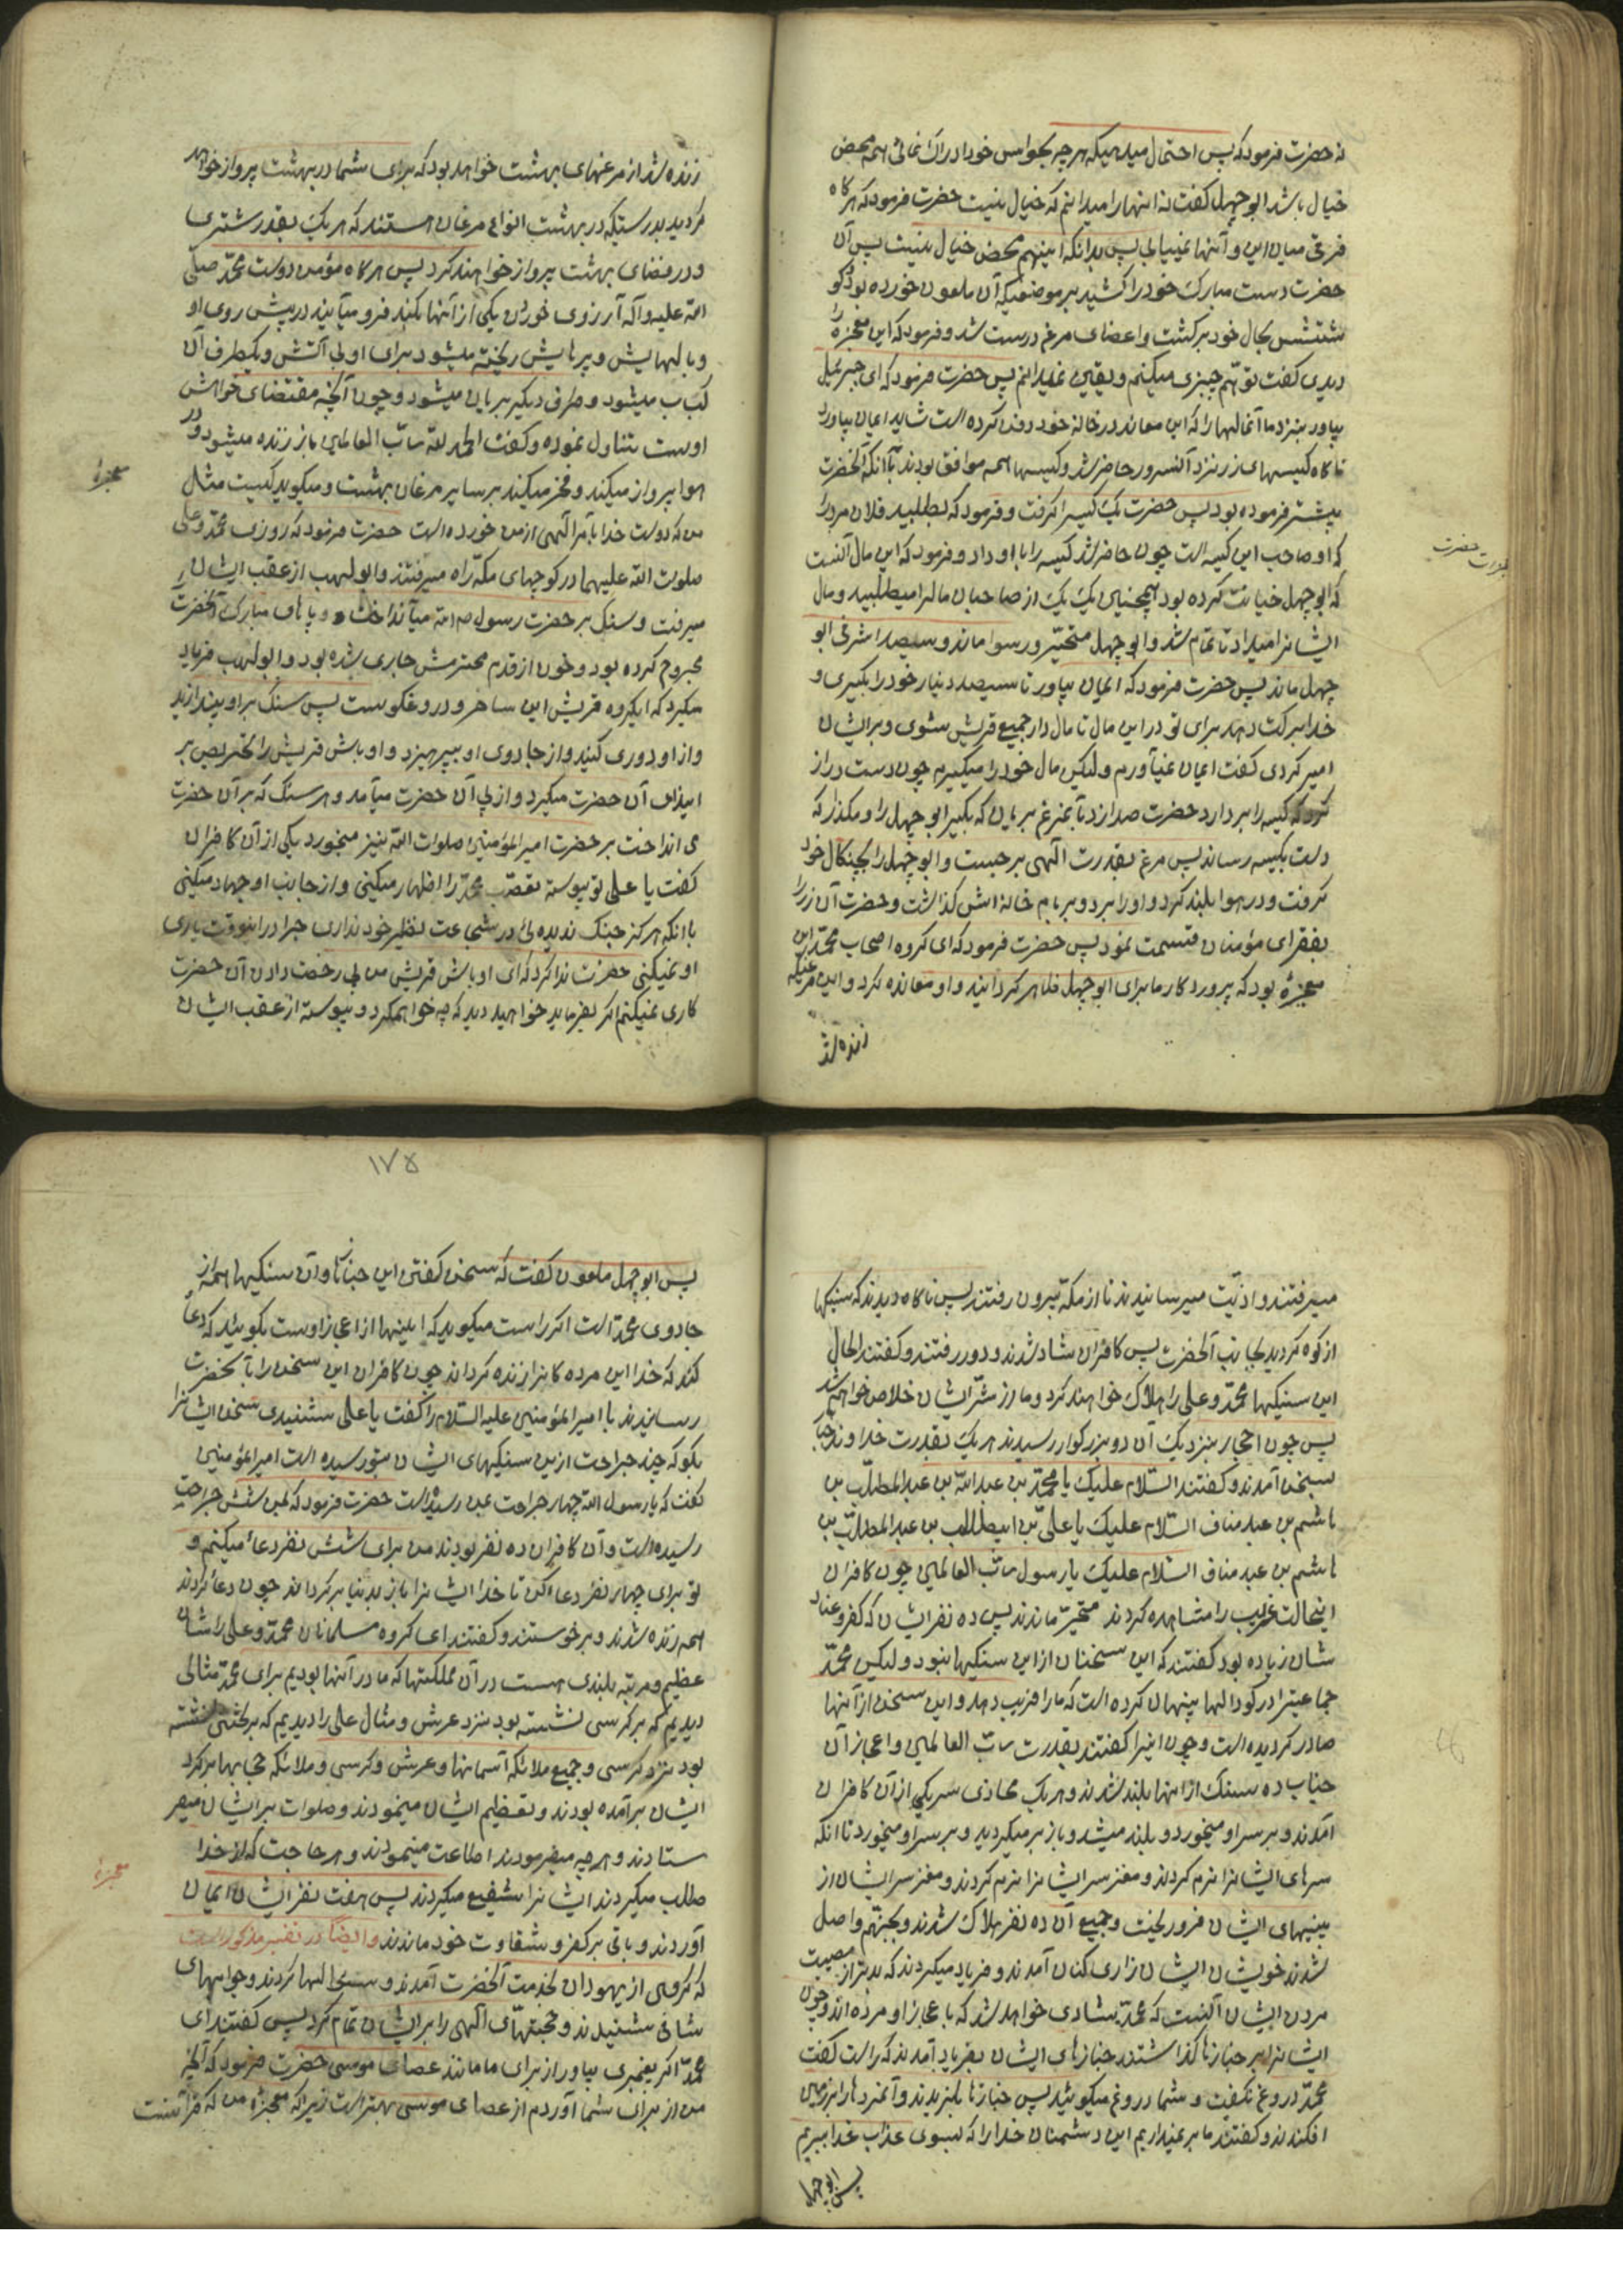 نه حضرت فرمود که پس احتمال میدهیکه هر چه بحواس خود ادراک نمائی همه محض
خیال باشد ابو جهل گفت نه اینها را میدانم که خیال نیست حضرت فرمود که هرگاه
فرقی میان این و آنها نمییابی پس بدانکه اینهم محض خیال نیست پس آن
حضرت دست مبارک خود را کشید بر موضعیکه آن ملعون خورده بود و گو
شتش بحال خود برگشت و اعضای مرغ درست شد و فرمود که این معجزه را
دیدی گفت توهّم چیزی میکنم و یقین نمیدانم پس حضرت فرمود که ای جبرئیل
بیاور بنزد ما آنمالها را که این معاند در خانه خود دفن کرده است شاید ایمان بیاورد
ناگاه کیسهای زر نزد آنسرور حاضر شد و کیسها همه موافق بودند با آنکه آنحضرت
پیشتر فرموده بود پس حضرت یک کیسه را گرفت و فرمود که بطلبید فلان مرد را
که او صاحب این کیسه است چون حاضر شد کیسه را باو داد و فرمود که این مال تست
که ابو جهل خیانت کرده بود همچنین یک یک از صاحبان مالرا میطلبید و مال
ایشانرا میداد تا تمام شد و ابو جهل متحیّر و رسوا ماند و سیصد اشرفی ابو
جهل ماند پس حضرت فرمود که ایمان بیاور تا سیصد دینار خود را بگیری و
خدا برکت دهد برای تو در این مال تا مال دار جمیع قریش شوی و بر ایشان
امیر گردی گفت ایمان نمیآورم ولیکن مال خود را میگیرم چون دست دراز
کرد که کیسه را بردارد حضرت صدا زد بآنمرغ بریان که بگیر ابو جهل را و مگذار که
دست بکیسه رساند پس مرغ بقدرت الهی برجست و ابو جهل را بچنگال خود
گرفت و در هوا بلند کرد و او را برد و بر بام خانه اش گذاشت و حضرت آن زر را
بفقرای مؤمنان قسمت نمود پس حضرت فرمود که ای گروه اصحاب محمّد این
معجزهٔ بود که پروردگار ما برای ابو جهل ظاهر گردانید و او معانده کرد و این مرغیکه
زنده شد
زنده شد از مرغهای بهشت خواهد بود که برای شما در بهشت پرواز خواهد
گردید بدرستیکه در بهشت انواع مرغان هستند که هر یک بقدر شتری
و در فضای بهشت پرواز خواهند کرد پس هرگاه مؤمن دوست محمّد صلی
الله علیه و آله آرزوی خوردن یکی از آنها بکند فرو میآیند در پیش روی او
و بالهایش و پرهایش ریخته میشود برای او بی آتش و یکطرف آن
کباب میشود و طرف دیگر بریان میشود و چون آنچه مقتضای خواهش
اوست تناول نموده و گفت الحمد لله ربّ العالمین باز زنده میشود و در
هوا پرواز میکند و فخر میکند بر سایر مرغان بهشت و میگوید کیست مثل
من که دوست خدا بامر الهی از من خورده است حضرت فرمود که روزی محمّد و علی
صلوات الله علیهما در کوچهای مکّه راه میرفتند و ابو لهب از عقب ایشان
میرفت و سنگ بر حضرت رسول ص م میانداخت و پاهای مبارک آنحضرت
مجروح کرده بود و خون از قدم محترمش جاری شده بود و ابو لهب فریاد
میکرد که ایگروه قریش این ساحر و دروغگوست پس سنگ بر او بیندازید
و از او دوری کنید و از جادوی او بپرهیزد و اوباش قریش را تحریص بر
ایذای آن حضرت میکرد و از پی آن حضرت میآمد و هر سنگ که بر آن حضرت
می انداخت بر حضرت امیر المؤمنین صلوات الله نیز میخورد یکی از آن کافران
گفت یا علی تو پیوسته تعصّب محمّد را اظهار میکنی و از جانب او جهاد میکنی
با آنکه هرگز جنگ ندیده ئی در شجاعت نظیر خود نداری چرا در اینوقت یاری
او نمیکنی حضرت ندا کرد که ای اوباش قریش من بی رخصت دادن آن حضرت
کاری نمیکنم اگر بفرماید خواهید دید که چه خواهم کرد و پیوسته از عقب ایشان
معجزهٔ
معجزات حضرت
میرفتند و اذیّت میرسانیدند تا از مکّه بیرون رفتند پس ناگاه دیدند که سنگها
از کوه گردید بجانب آنحضرت پس کافران شاد شدند و دور رفتند و گفتند الحال
این سنگها محمّد و علی را هلاک خواهند کرد و ما از شرّ ایشان خلاص خواهیم شد
پس چون احجار بنزدیک آن دو بزرگوار رسیدند هر یک بقدرت خداوند
بسخن آمدند و گفتند السّلام علیک یا محمّد بن عبد الله بن عبد المطلّب بن
هاشم بن عبد مناف السّلام علیک یا علی بن ابیطالب بن عبد المطلّب بن
هاشم بن عبد مناف السّلام علیک یا رسول ربّ العالمین چون کافران
اینحالت غریب را مشاهده کردند متحیّر ماندند پس ده نفر ایشان که کفر و عناد
شان زیاده بود گفتند که این سخنان از این سنگها نبود ولیکن محمّد
جماعتیرا در گودالها پنهان کرده است که ما را فریب دهد و این سخن از آنها
صادر گردیده است و چون اینرا گفتند بقدرت ربّ العالمین و اعجاز آن
جناب ده سنگ از اینها بلند شدند و هر یک محاذی سر یکی از آن کافران
آمدند و بر سر او میخورد و بلند میشد و باز بر میگردید و بر سر او میخورد تا آنکه
سرهای ایشانرا نرم کردند و مغز سر ایشانرا نرم کردند و مغز سر ایشان از
بینیهای ایشان فرو ریخت و جمیع آن ده نفر هلاک شدند و بجهنّم واصل
شدند خویشان ایشان زاری کنان آمدند و فریاد میکردند که بدتر از مصیبت
مردن ایشان آنست که محمّد بشادی خواهد شد که باعجاز او مرده اند و چون
ایشانرا بر جنازها گذاشتند جنازهای ایشان بفریاد آمدند که راست گفت
محمّد دروغ نگفت و شما دروغ میگوئید پس جنازها بلرزیدند و آنمردها را بر زمین
افکندند و گفتند ما بر نمیداریم این دشمنان خدا را که بسوی عذاب خدا ببریم
پس ابو جهل
١٧۵
پس ابو جهل ملعون گفت که سخن گفتن این جنازها و آن سنگیها همه از
جادوی محمّد است اگر راست میگوید که اینها از اعجاز اوست بگوئید که دعا
کند که خدا این مرده گانرا زنده گرداند چون کافران این سخن را بآنحضرت
رسانیدند با امیر المؤمنین علیه السّلام را گفت یا علی شنیدی سخن ایشانرا
بگو که چند جراحت از این سنگیهای ایشان بتو رسیده است امیر المؤمنین
گفت که یا رسول الله چهار جراحت بمن رسیده است حضرت فرمود که بمن شش جراحت
رسیده است و آن کافران ده نفر بودند من برای شش نفر دعا میکنم و
تو برای چهار نفر دعا کن تا خدا ایشانرا باز بدنیا برگرداند چون دعا کردند
همه زنده شدند و برخوستند و گفتند ای گروه مسلمانان محمّد و علی را شان
عظیم و مرتبه بلندی هست در آن مملکتها که ما در آنها بودیم برای محمّد مثالی
دیدیم که بر کرسی نشسته بود بنزد عرش و مثال علی را دیدیم که بر تختی نشسته
بود نزد کرسی و جمیع ملائکه آسمانها و عرش و کرسی و ملائکه حجابها بر گرد
ایشان بر آمده بودند و تعظیم ایشان مینمودند و صلوات بر ایشان میفر
ستادند و هر چه میفرمودند اطاعت مینمودند و هر حاجت که از خدا
طلب میکردند ایشانرا شفیع میکردند پس هفت نفر ایشان ایمان
آوردند و باقی بر کفر و شقاوت خود ماندند و ایضاً در تفسیر مذکور است
که گروهی از یهودان بخدمت آنحضرت آمدند و سؤالها کردند و جوابهای
شافی شنیدند و حجّتهای الهی را بر ایشان تمام کرد پس گفتند ای
محمّد اگر پیغمبری بیاور از برای ما مانند عصای موسی حضرت فرمود که آنچه
من از برای شما آوردم از عصای موسی بهتر است زیرا که معجزه من که قرآنست
معجزهٔ